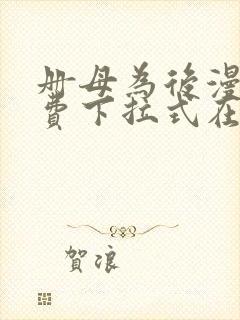 册母為後漫
費下拉式在
賀浪